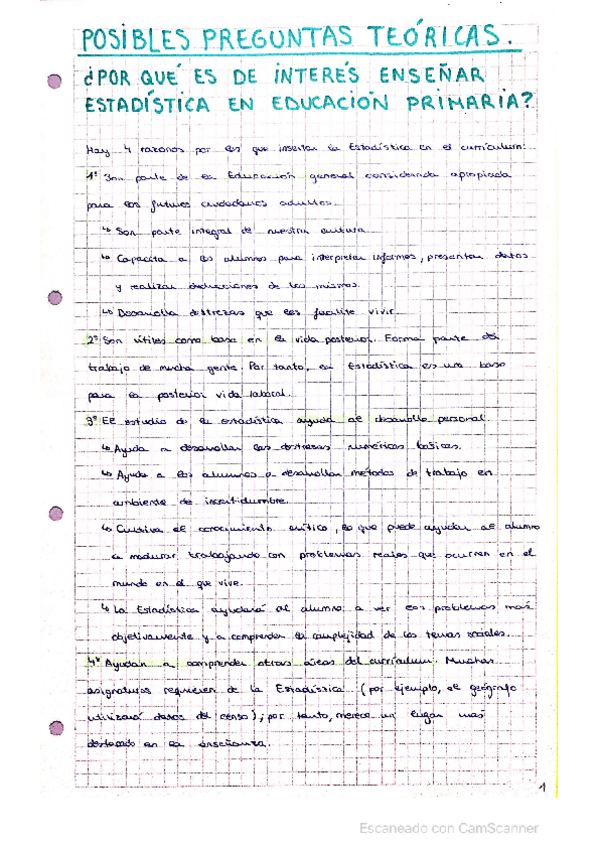 POSIBLES PREGUNTAS TEÓRICAS.
¿POR QUÉ ES DE INTERÉS ENSEÑAR
ESTADÍSTICA EN EDUCACIÓN PRIMARIA?
Hay 4 razones por las que insertar la Estadística en el currículum:
1º Son parte de la Educación general considerada apropiada
para los futuros ciudadanos adultos.
↳ Son parte integral de nuestra cultura.
↳ Capacita a los alumnos para interpretar informes, presentar datos
y realizar deducciones de los mismos.
↳ Desarrolla destrezas que les facilite vivir.
2º Son útiles como base en la vida posterior. Forma parte del
trabajo de mucha gente. Por tanto, la Estadística es una base
para la posterior vida laboral.
3º El estudio de la estadística ayuda al desarrollo personal.
↳ Ayuda a desarrollar las destrezas numéricas básicas.
↳ Ayuda a los alumnos a desarrollar métodos de trabajo en
ambiente de incertidumbre.
↳ Cultiva el conocimiento crítico, lo que puede ayudar al alumno
a madurar, trabajando con problemas reales que ocurren en el
mundo en el que vive.
↳ La Estadística ayudará al alumno a ver los problemas más
objetivamente y a comprender la complejidad de los temas sociales.
4º Ayudan a comprender otras áreas del currículum. Muchas
asignaturas requieren de la Estadística (por ejemplo, el geógrafo
utilizará datos del censo); por tanto, merece un lugar más
destacado en la enseñanza.
1
Escaneado con CamScanner